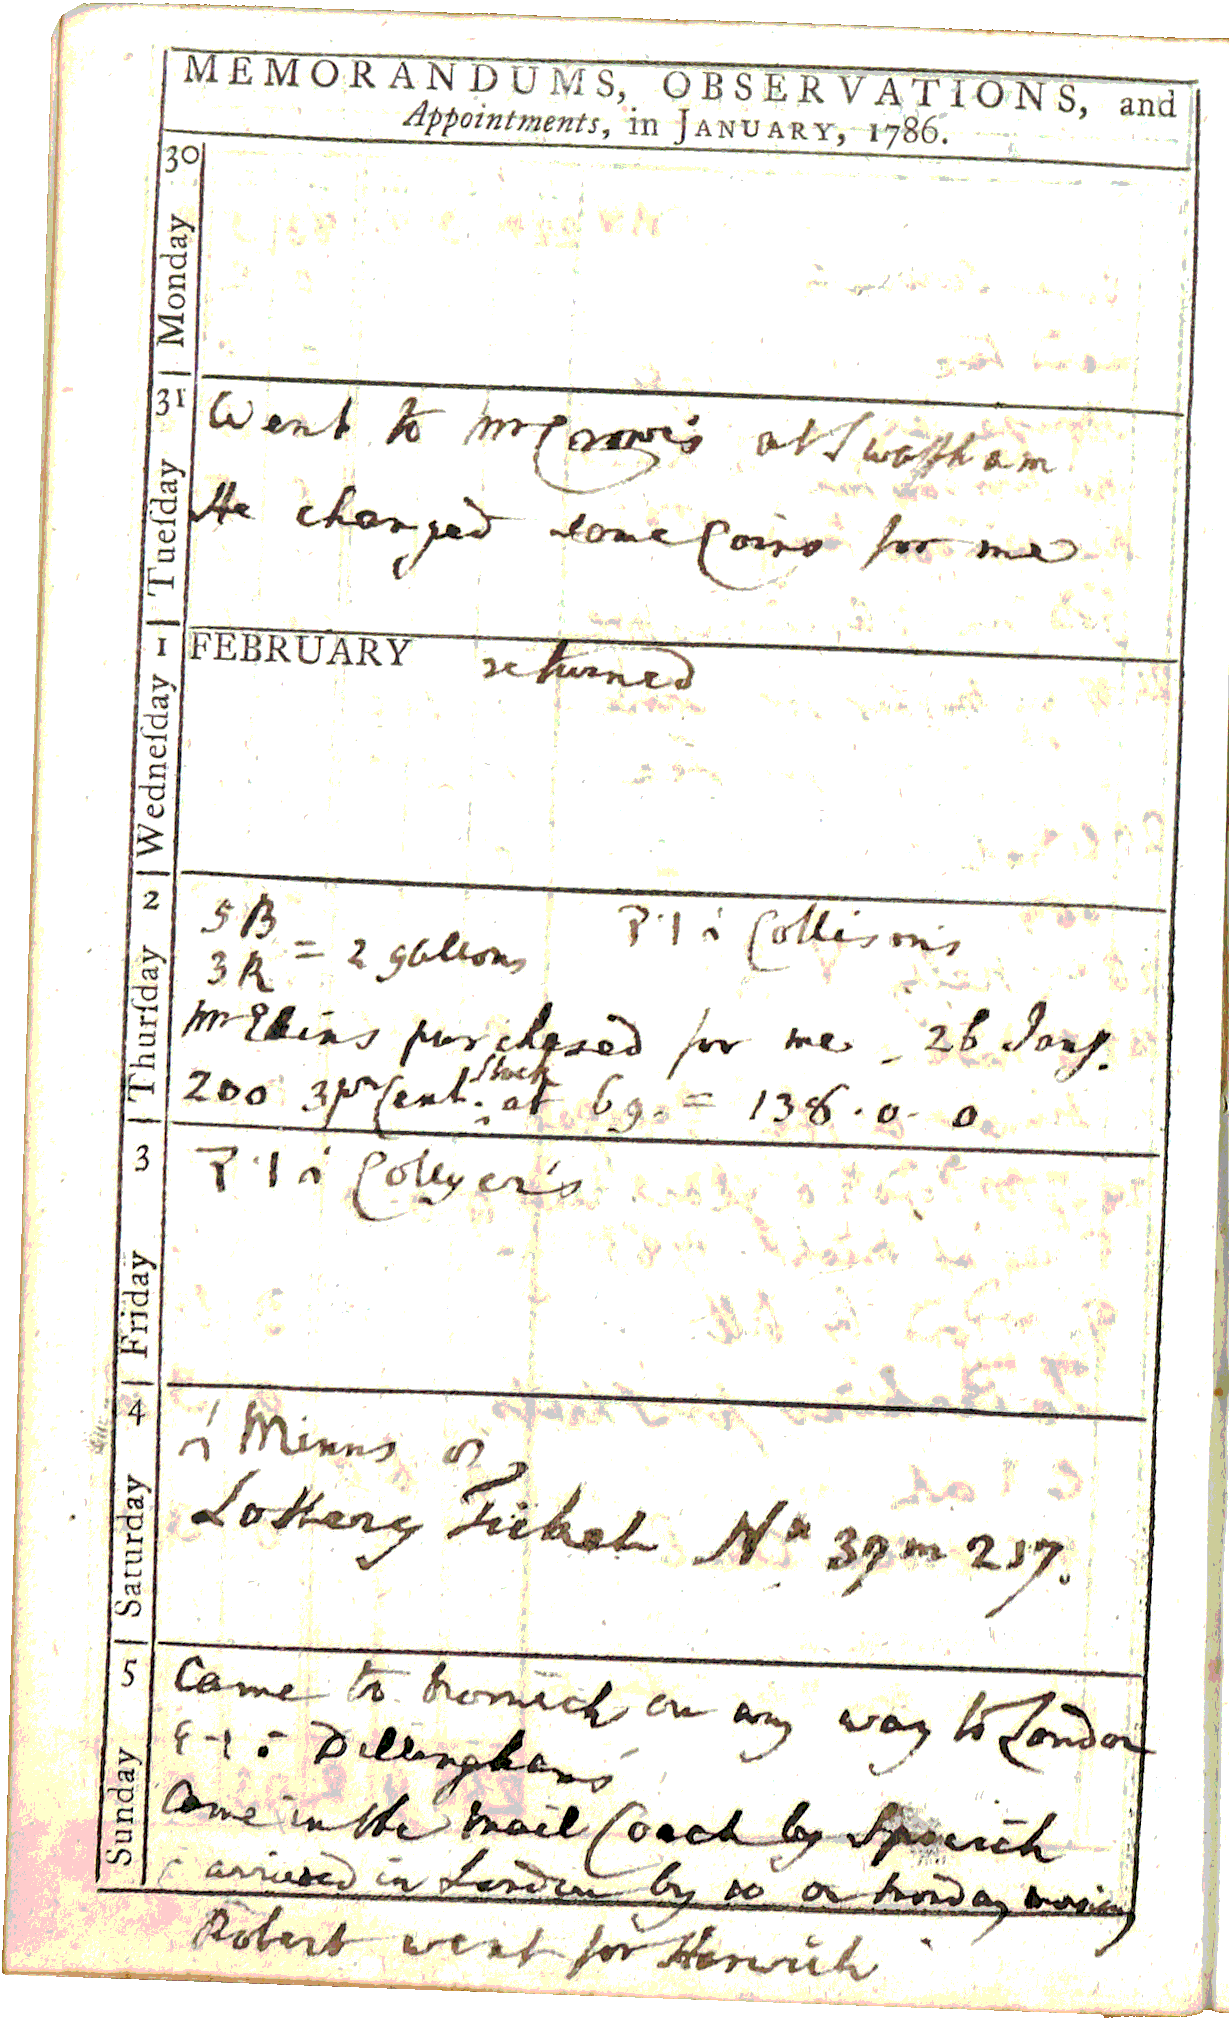 MEMORANDUMS, OBSERVATIONS, and
Appointments, in JANUARY, 1786.
30
Monday
31
Tueſday
Went to Mr Crowe's at Swaffham
He changed some Coins for me
1
Wedneſday
FEBRUARY returned
2
Thurſday
5 B
3 R = 2 gallons
Collison's
Mr Elsins purchased for me 26 Jany.
200 3 pr Cent. Stock at 69. = 138. 0. 0
3
Friday
Collyer's
4
Saturday
Minns
Lottery Ticket No 37m 217.
5
Sunday
Came to Norwich on my way to London
Dillingham's
Came in the Mail Coach by Ipswich
arrived in London by 10 on Monday morning
Robert went for Harwich